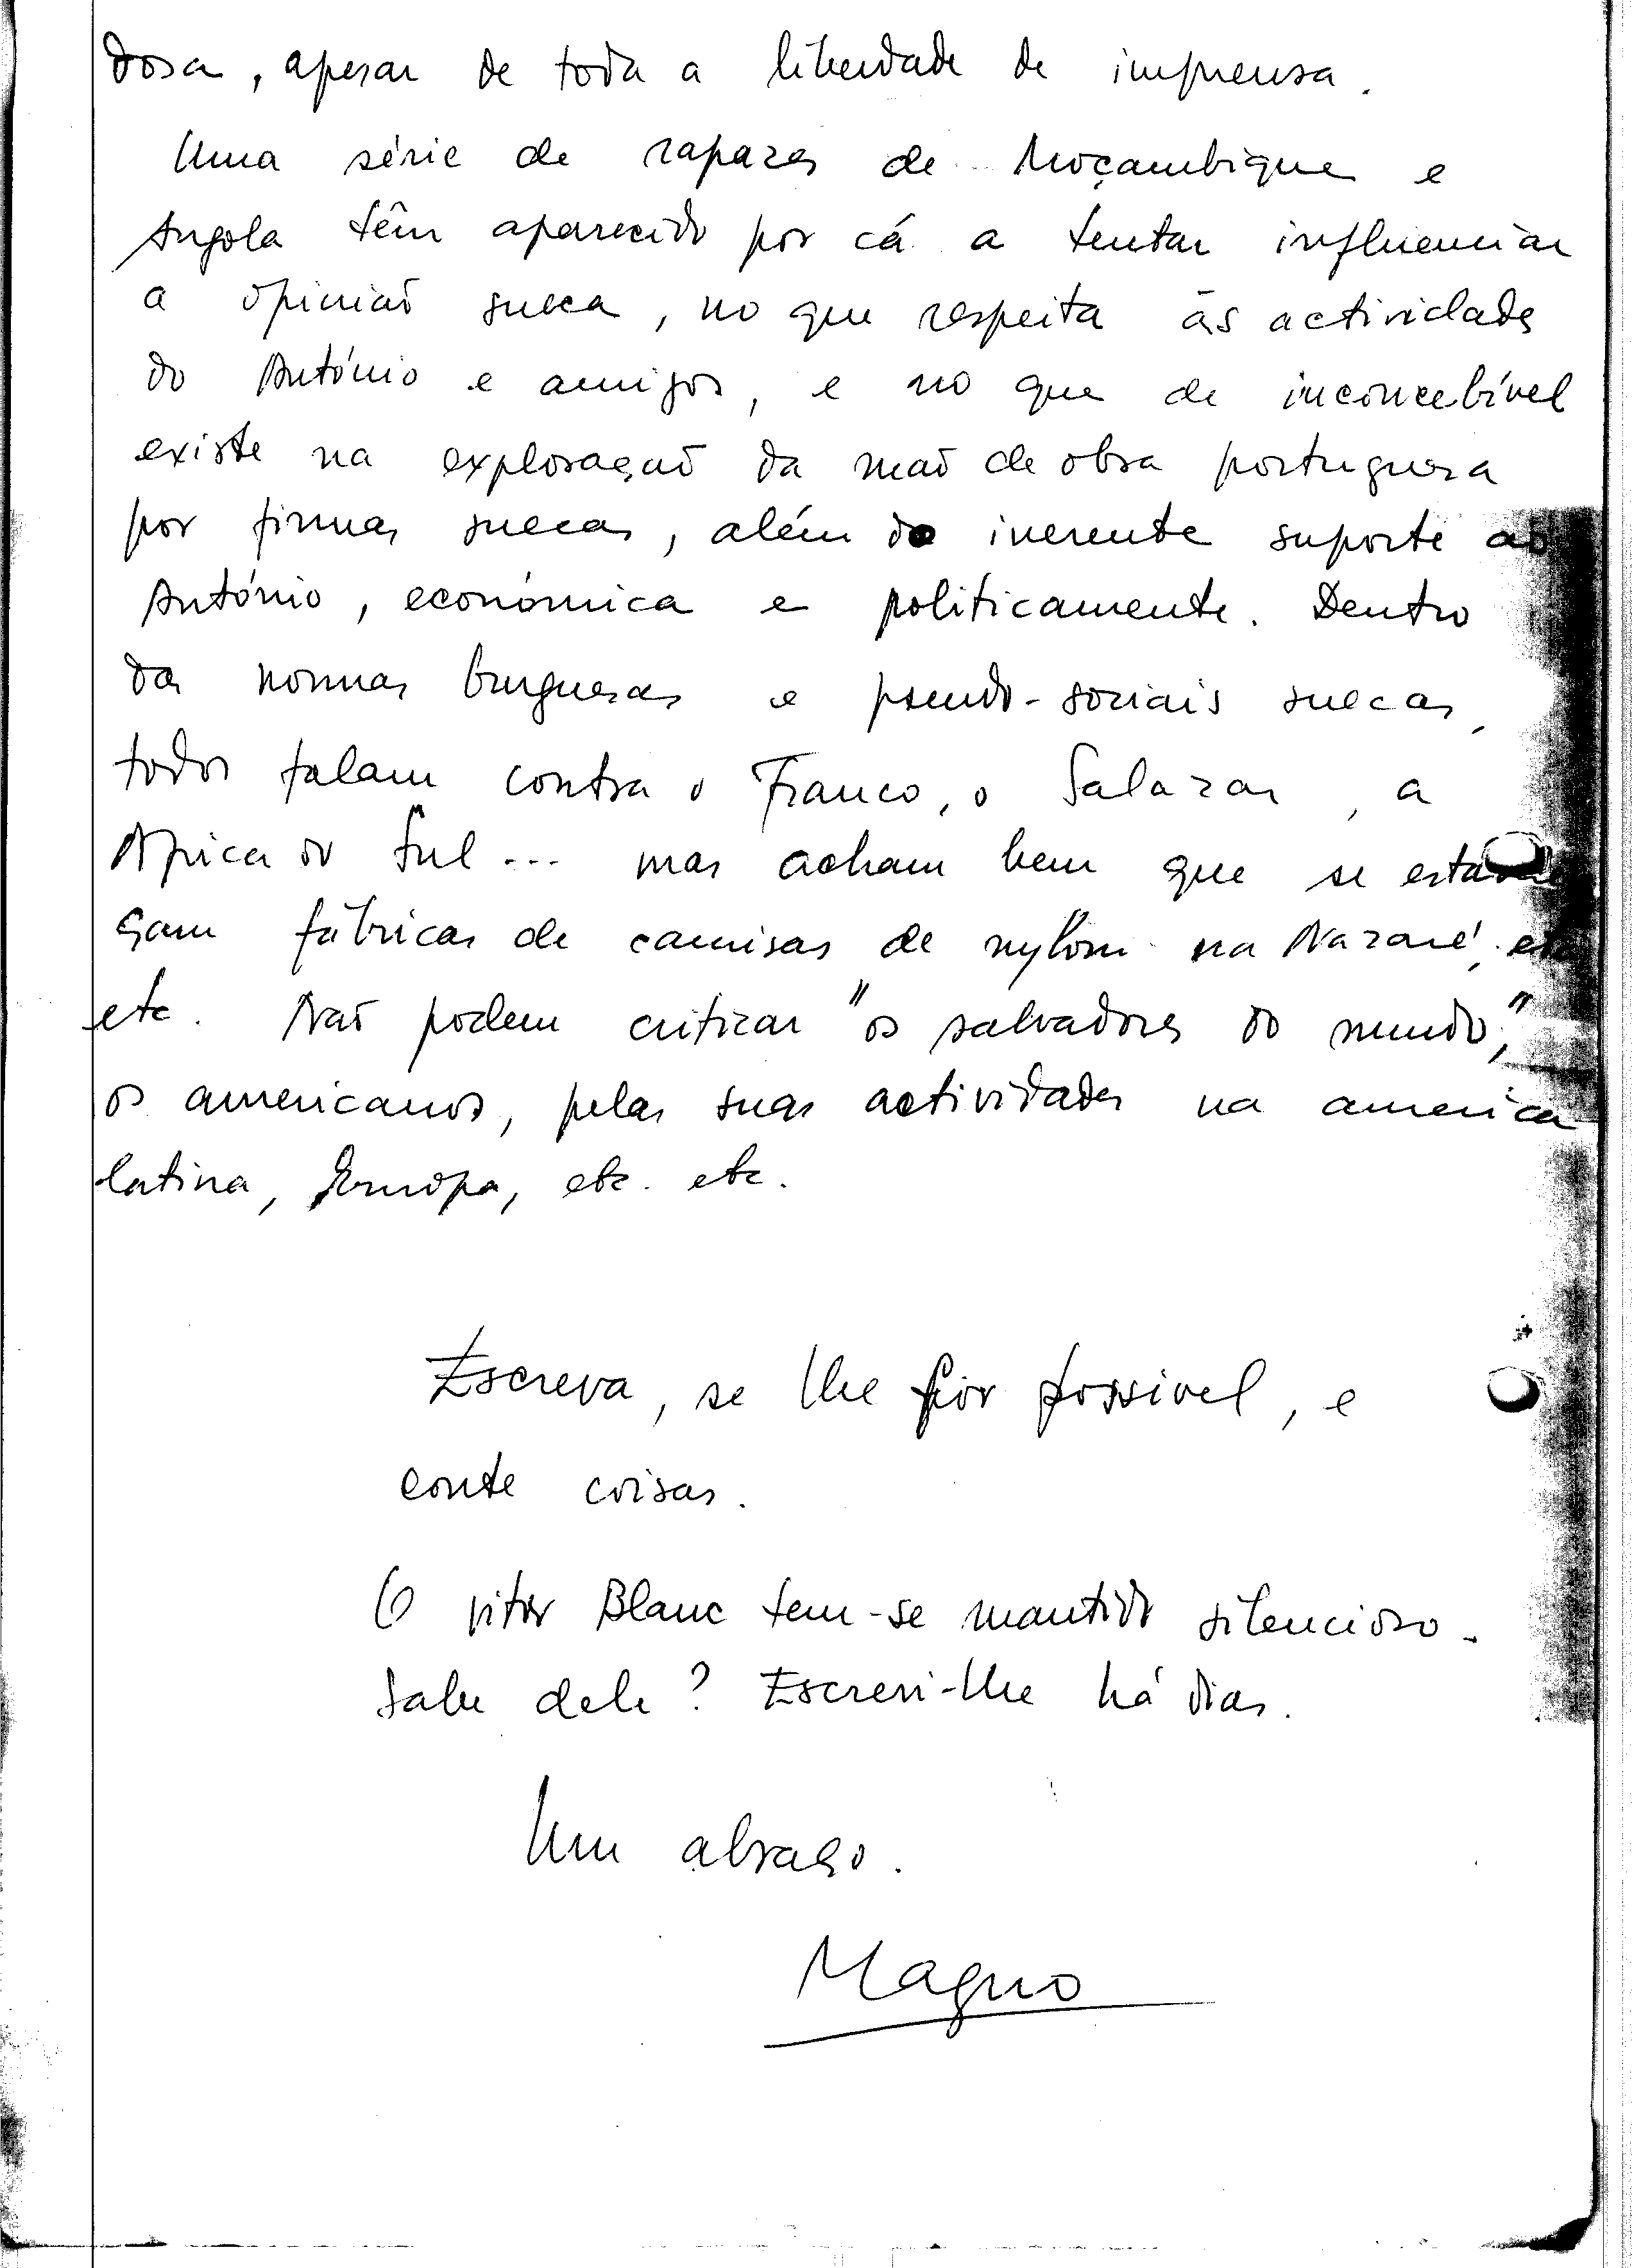 dosa, apesar de toda a liberdade de imprensa.
Uma série de rapazes de Moçambique e
Angola têm aparecido por cá a tentar influenciar
a opinião sueca, no que respeita às actividades
do António e amigos, e no que de inconcebível
existe na exploração da mão de obra portuguesa
por firmas suecas, além do inerente suporte ao
António, económica e politicamente. Dentro
das normas burguesas e pseudo-sociais suecas,
todos falam contra o Franco, o Salazar, a
Africa do Sul... mas acham bem que se estabele
çam fábricas de camisas de nylon na Nazaré, etc
etc. Não podem criticar "os salvadores do mundo,"
os americanos, pelas suas actividades na america
latina, Europa, etc. etc.
Escreva, se lhe fôr possivel, e
conte coisas.
O Vitor Blanc tem-se mantido silencioso.
Sabe dele? Escrevi-lhe há dias.
Um abraço.
Magno